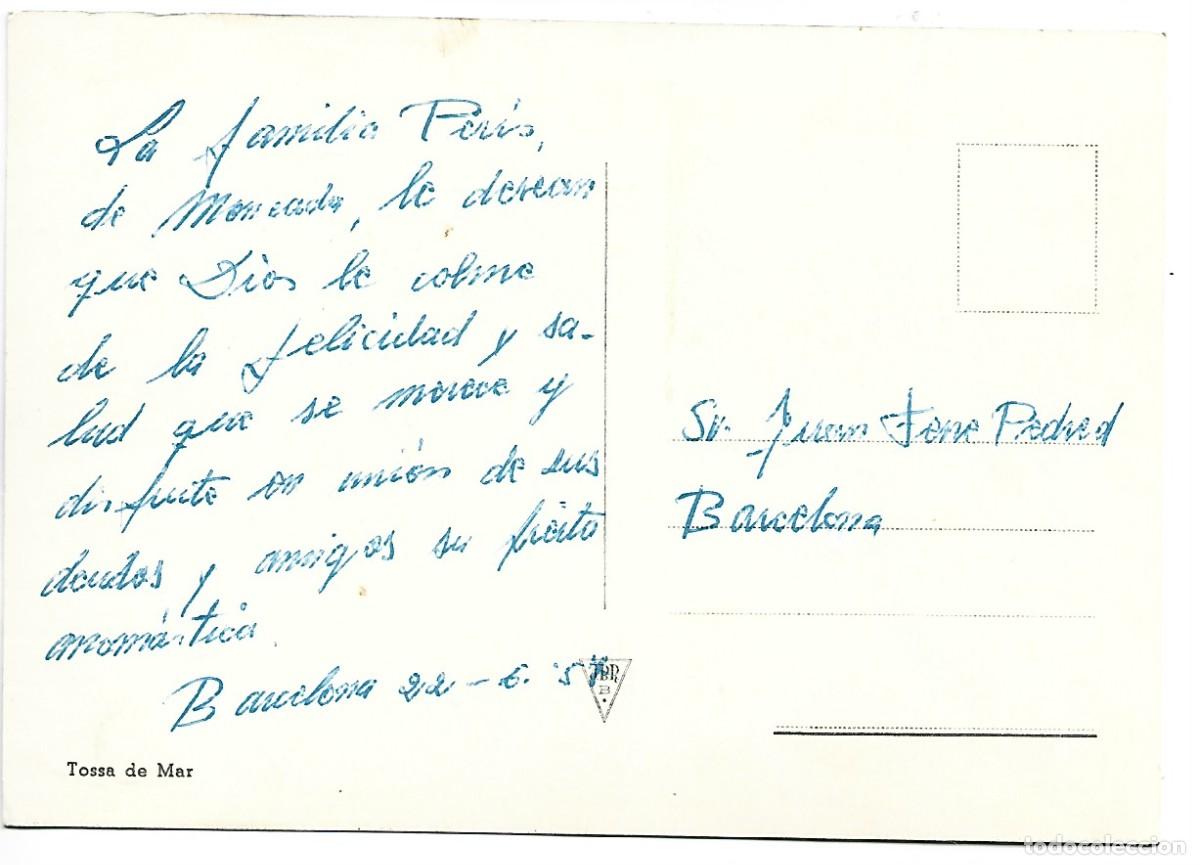 La familia Peris,
de Moncada, le desean
que Dios le colme
de la felicidad y sa-
lud que se merece y
disfrute en unión de sus
deudos y amigos su fiesta
onomástica.
Barcelona 22-6-57
Tossa de Mar
Sr. Juan Fene Pedred
Barcelona
todocoleccion